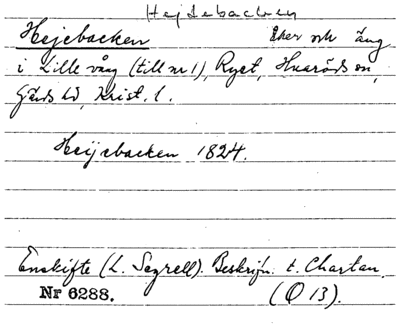 Hejdebacken
Hejebacken Åker och äng
i Lille vång (till nr 1), Ryet, Huaröds sn,
Gärds hd, Krist. l.
Heijebacken 1824.
Enskifte (L. Segrell). Beskrifn. t. Chartan.
Nr 6288. (Q 13).